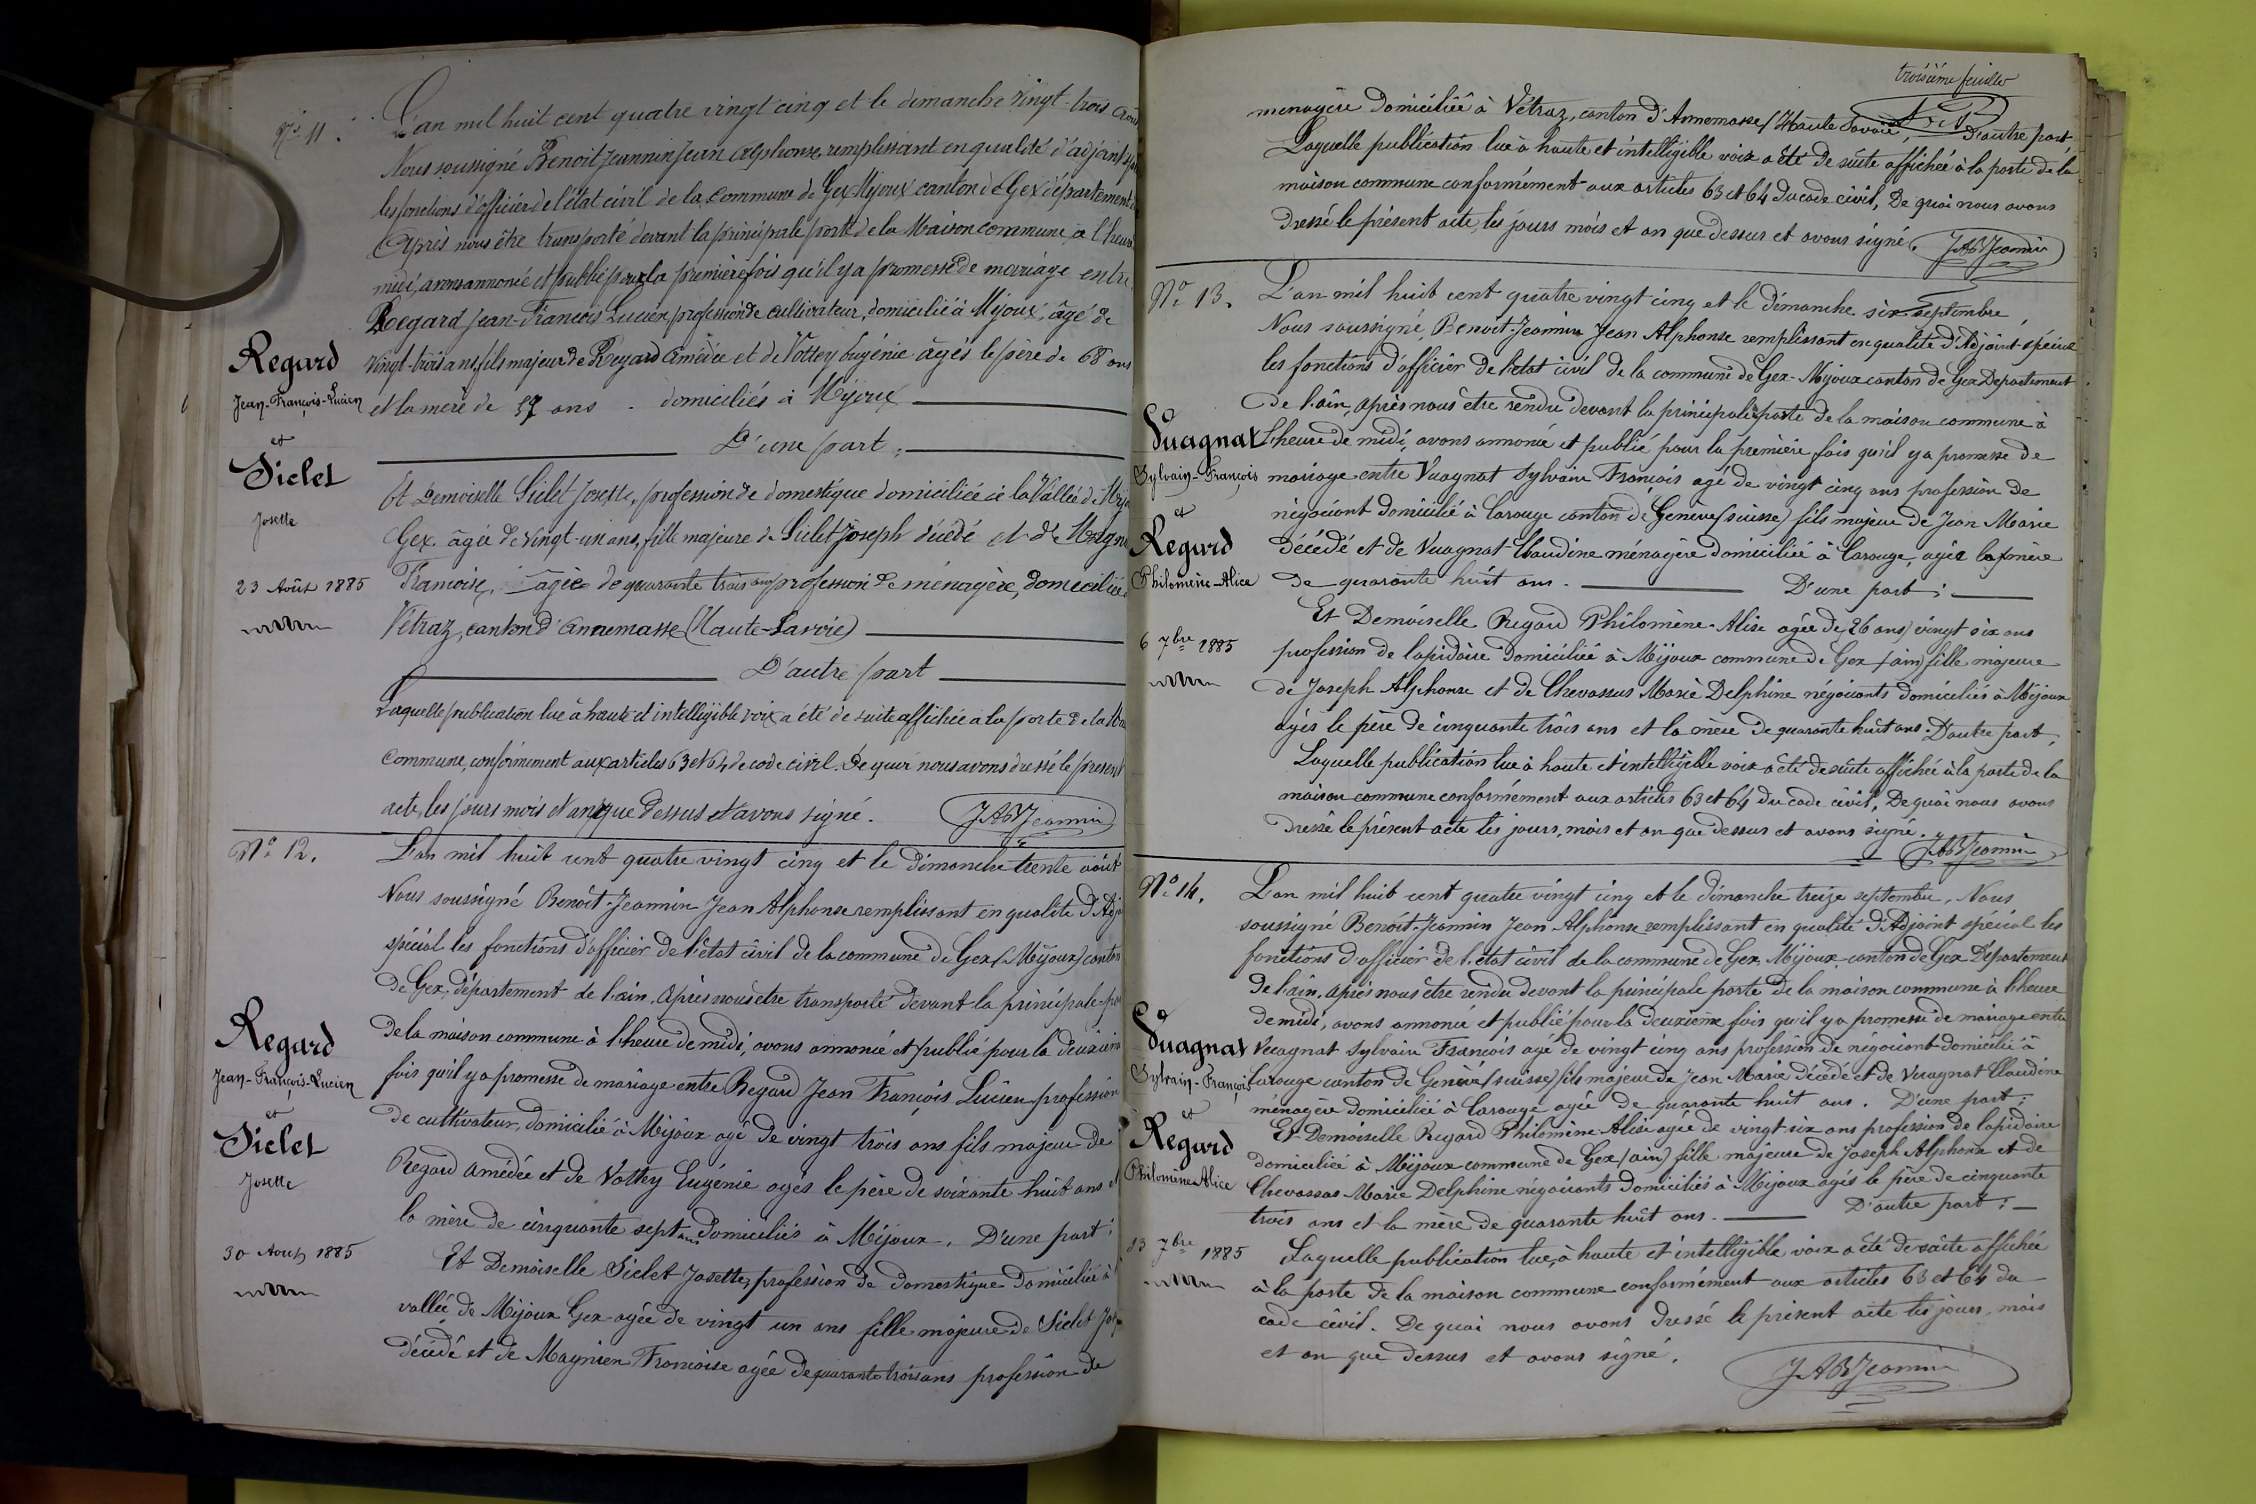 No 11.
L'an mil huit cent quatre vingt cinq et le dimanche vingt-trois Août
Nous soussigné Benoit Jeannin Jean Alphonse, remplissant en qualité d'adjoint
les fonctions d'officier de l'état civil de la Commune de Gex Mijoux canton de Gex département
Après nous être transporté devant la principale porte de la Maison commune, à l'heure
midi, avons annoncé et publié pour la première fois qu'il y a promesse de mariage entre
Regard Jean-François Lucien, profession de cultivateur, domicilié à Mijoux, âgé de
vingt-trois ans, fils majeur de Regard Amédée et de Vottey Eugénie âgés le père de 68 ans
et la mère de 57 ans - domiciliés à Mijoux
D'une part;
Et Demoiselle Siclet Josette, profession de domestique domiciliée à la Vallée de
Gex. âgée de vingt-un ans, fille majeure de Siclet Joseph décédé et de
Francoise, âgée de quarante trois ans profession de ménagère, domiciliée
Vétraz, canton d'Annemasse (Haute-Savoie)
D'autre part
Laquelle publication lue à haute et intelligible voix a été de suite affichée à la porte de la
Commune, conformément aux articles 63 et 64 de code civil. De quoi nous avons dressé le présent
acte, les jours mois et an que dessus et avons signé. JABJeannin
Regard
Jean-François-Lucien
et
Siclet
Josette
23 Août 1885
No 12.
L'an mil huit cent quatre vingt cinq et le dimanche trente août
Nous soussigné Benoit-Jeannin Jean Alphonse remplissant en qualité
spécial les fonctions d'officier de l'état civil de la commune de Gex (Mijoux) canton
de Gex, département de l'ain. Après nous être transporté devant la principale
de la maison commune à l'heure de midi, avons annoncé et publié pour la deuxième
fois qu'il y a promesse de mariage entre Regard Jean François Lucien profession
de cultivateur, domicilié à Mijoux agé de vingt trois ans fils majeur de
Regard Amédée et de Vottey Eugénie agés le père de soixante huit ans
la mère de cinquante sept ans domiciliés à Mijoux. D'une part;
Et Demoiselle Siclet Josette, profession de domestique domiciliée à
vallée de Mijoux Gex agée de vingt un ans fille majeure de Siclet
décédé et de Magnien Francoise agée de quarante trois ans profession de
Regard
Jean-François-Lucien
et
Siclet
Josette
30 Août 1885
troisième feuillet
menagère domiciliée à Vétraz, canton d'Annemasse (Haute Savoie), D'autre part,
Laquelle publication lue à haute et intelligible voix a été de suite affichée à la porte de la
maison commune conformément aux articles 63 et 64 du code civil, De quoi nous avons
dressé le présent acte, les jours mois et an que dessus et avons signé. JABJeannin
No 13.
L'an mil huit cent quatre vingt cinq et le dimanche six septembre
Nous soussigné, Benoit-Jeannin Jean Alphonse remplissant en qualité d'Adjoint-spécial
les fonctions d'officier de l'état civil de la commune de Gex-Mijoux canton de Gex Département
de l'ain, après nous être rendu devant la principale porte de la maison commune à
l'heure de midi, avons annoncé et publié pour la première fois qu'il y a promesse de
mariage entre Vuagnat Sylvain François agé de vingt cinq ans profession de
négociant domicilié à Carouge canton de Genève (suisse) fils majeur de Jean Marie
décédé et de Vuagnat Claudine ménagère domiciliée à Carouge, agée
de quarante huit ans. D'une part;
Et Demoiselle Regard Philomène-Alise agée de (26 ans) vingt six ans
profession de lapidaire domiciliée à Mijoux commune de Gex (ain) fille majeure
de Joseph Alphonse et de Chevassus Marie Delphine négociants domiciliés à Mijoux
agés le père de cinquante trois ans et la mère de quarante huit ans. D'autre part,
Laquelle publication lue à haute et intelligible voix a été de suite affichée à la porte de la
maison commune conformément aux articles 63 et 64 du code civil, De quoi nous avons
dressé le présent acte les jours, mois et an que dessus et avons signé.
JABJeannin
Vuagnat
Sylvain-François
et
Regard
Philomène-Alice
6 7bre 1885
No 14.
L'an mil huit cent quatre vingt cinq et le dimanche treize septembre, Nous
soussigné Benoit-Jeannin Jean-Alphonse remplissant en qualité d'Adjoint spécial les
fonctions d'officier de l'état civil de la commune de Gex, Mijoux canton de Gex Département
de l'ain. après nous être rendu devant la principale porte de la maison commune à l'heure
de midi, avons annoncé et publié pour la deuxième fois qu'il y a promesse de mariage entre
Vuagnat Sylvain François agé de vingt cinq ans profession de negociant domicilié à
Carouge canton de Genève (suisse) fils majeur de Jean Marie décédé et de Vuagnat Claudine
ménagère domiciliée à Carouge agée de quarante huit ans. D'une part;
Et Demoiselle Regard Philomène Alise agée de vingt six ans profession de lapidaire
domiciliée à Mijoux commune de Gex (ain) fille majeure de Joseph Alphonse et de
Chevassus Marie Delphine négociants domiciliés à Mijoux agés le père de cinquante
trois ans et la mère de quarante huit ans. D'autre part;
Laquelle publication lue, à haute et intelligible voix a été de suite affichée
à la porte de la maison commune conformément aux articles 63 et 64 du
code civil. De quoi nous avons dressé le présent acte les jours, mois
et an que dessus et avons signé.
JABJeannin
Vuagnat
Sylvain-François
et
Regard
Philomène-Alice
13 7bre 1885